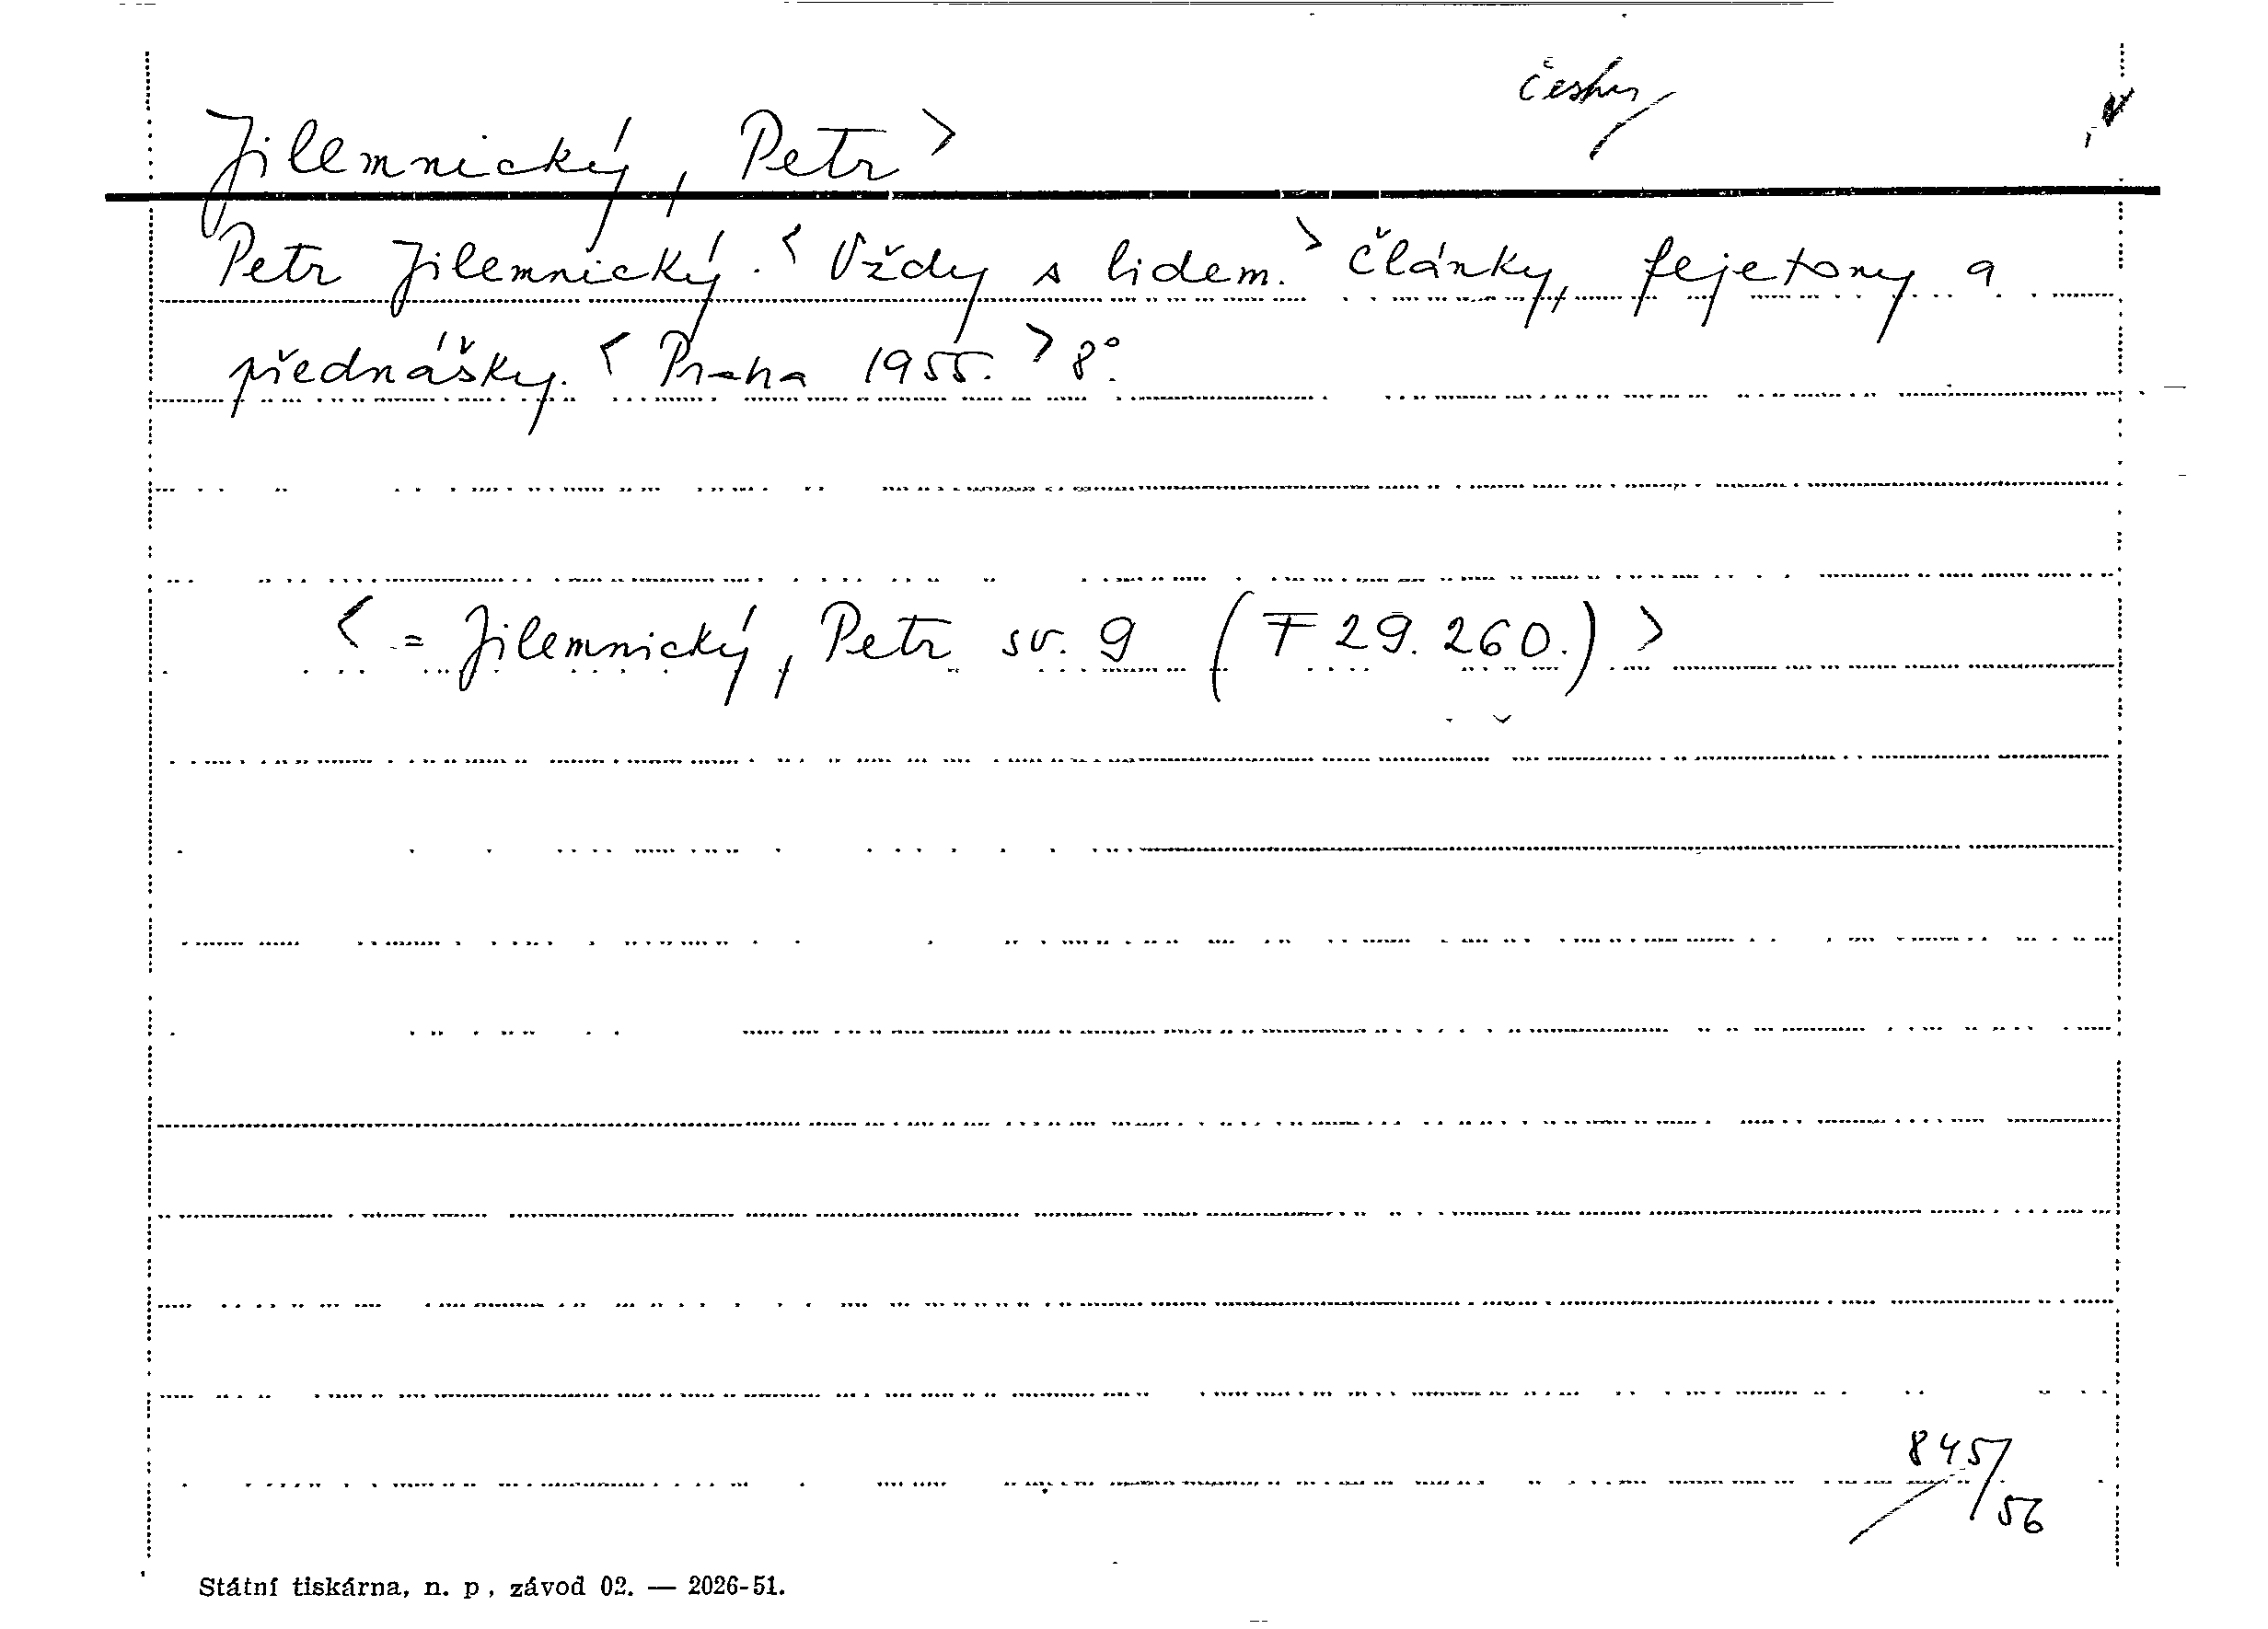 česky
Jilemnický, Petr >
Petr Jilemnický. < Vždy s lidem. > Články, fejetony a
přednášky. < Praha 1955. > 8°.
< = Jilemnický, Petr sv. 9 (F 29.260.) >
845/56
Státní tiskárna, n. p., závod 02. — 2026-51.